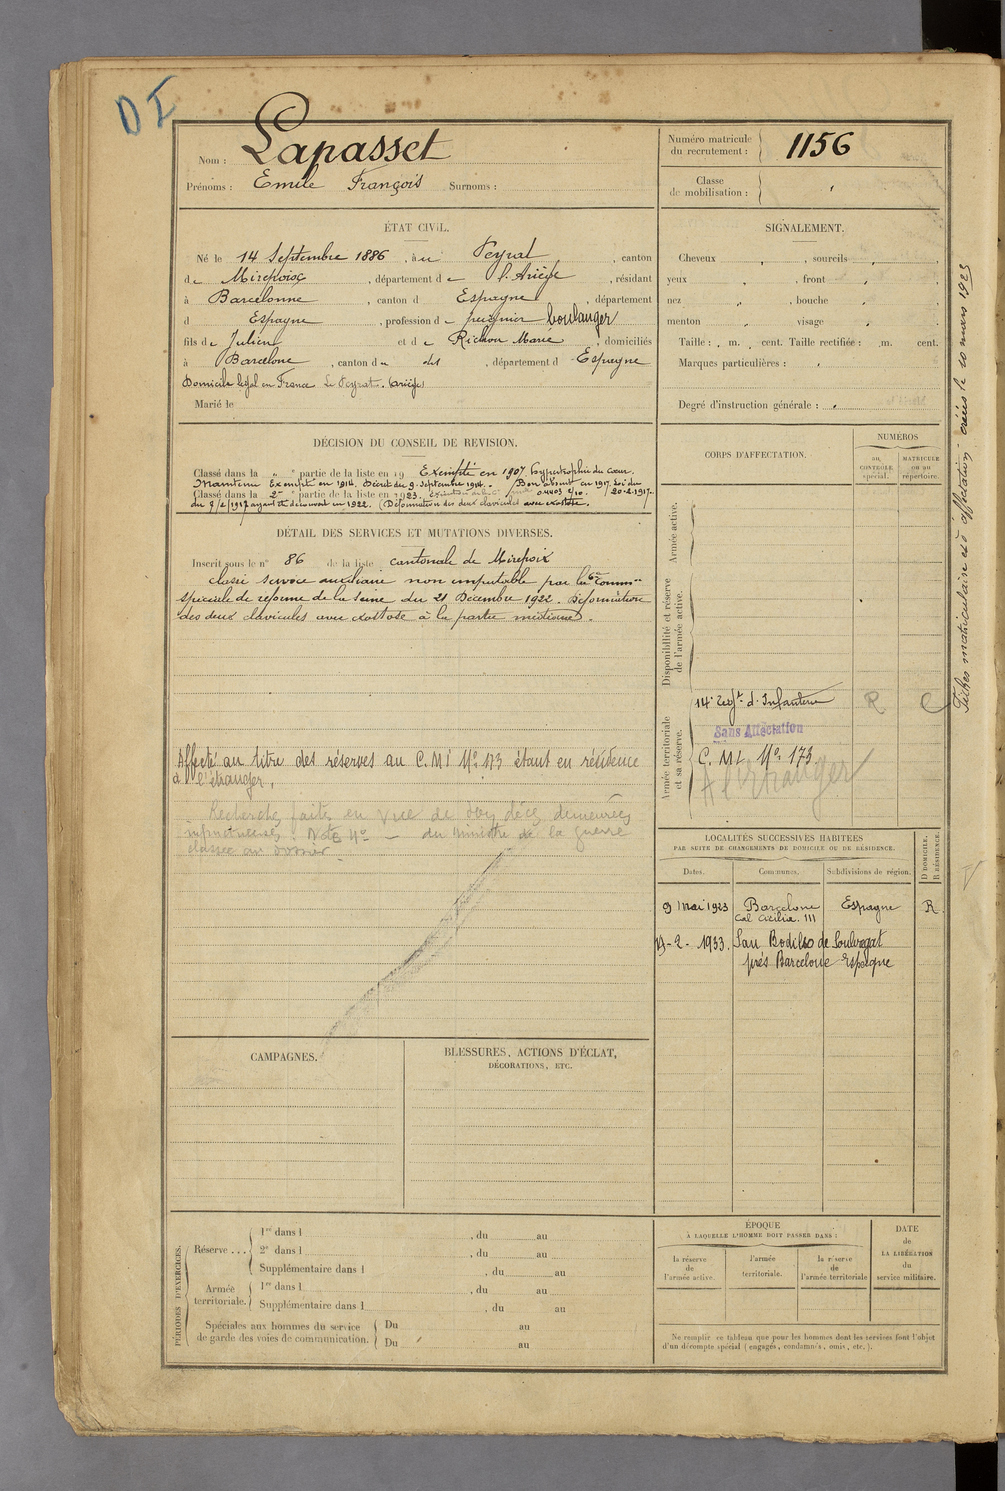 D I
Nom : Lapasset
Prénoms : Emile François Surnoms :
Numéro matricule du recrutement : 1156
Classe de mobilisation :
ÉTAT CIVIL.
Né le 14 Septembre 1886, à Peyrat, canton
de Mirepoix, département de l'Ariège, résidant
à Barcelonne, canton d Espagne, département
d Espagne, profession de peignier boulanger
fils de Julien et de Richou Marie, domiciliés
à Barcelone, canton de dts, département d Espagne
Domicile légal en France Le Peyrat. (Ariège)
Marié le
SIGNALEMENT.
Cheveux , sourcils
yeux , front
nez , bouche
menton visage
Taille : m. cent. Taille rectifiée : m. cent.
Marques particulières :
Degré d'instruction générale :
DÉCISION DU CONSEIL DE REVISION.
Classé dans la " partie de la liste en 19 Exempté en 1907 hypertrophie du cœur.
Maintenu Exempté en 1914. Décret du 9. septembre 1914. Bon absent en 1917. Loi du
Classé dans la 2e partie de la liste en 1923. 20.2.1917.
du 9/2/1917 ayant été découvert en 1922. (Déformation des deux clavicules avec exostose.
DÉTAIL DES SERVICES ET MUTATIONS DIVERSES.
Inscrit sous le n° 86 de la liste cantonale de Mirepoix
classé service auxiliaire non imputable par la 6e Comm
spéciale de réforme de la Seine du 21 Décembre 1922. Déformation
des deux clavicules avec exostose à la partie médiane.
Affecté au titre des réserves au C.M.I No 173 étant en résidence
à l'étranger.
Recherches faites en vue de décès demeurées
infructueuses. Note No — du Ministre de la guerre
classée au dossier.
CORPS D'AFFECTATION.
NUMÉROS
au CONTRÔLE spécial.
MATRICULE ou au répertoire.
Armée active.
Disponibilité et réserve de l'armée active.
Armée territoriale et sa réserve.
14e Regt d'Infanterie R C
Sans Affectation
C. MI. No 173
A l'étranger
LOCALITÉS SUCCESSIVES HABITÉES
PAR SUITE DE CHANGEMENTS DE DOMICILE OU DE RÉSIDENCE.
Dates. Communes. Subdivisions de région. D DOMICILE. R RÉSIDENCE.
9 Mai 1923 Barcelone Espagne R.
111
-2- 1933. San de
près Barcelone Espagne
Fiches matriculaire et d'affectation créées le 10 mars 1923
CAMPAGNES.
BLESSURES, ACTIONS D'ÉCLAT,
DÉCORATIONS, ETC.
PÉRIODES D'EXERCICES.
Réserve ...
1re dans l , du au
2e dans l , du au
Supplémentaire dans l , du au
Armée territoriale.
1re dans l , du au
Supplémentaire dans l , du au
Spéciales aux hommes du service de garde des voies de communication.
Du au
Du au
ÉPOQUE
À LAQUELLE L'HOMME DOIT PASSER DANS :
la réserve de l'armée active.
l'armée territoriale.
la réserve de l'armée territoriale
DATE de LA LIBÉRATION du service militaire.
Ne remplir ce tableau que pour les hommes dont les services font l'objet
d'un décompte spécial (engagés, condamnés, omis, etc.).